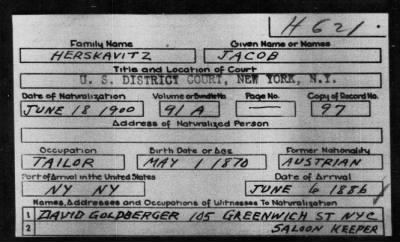 H 621.
Family Name Given Name or Names
HERSKAVITZ JACOB
Title and Location of Court
U. S. DISTRICT COURT, NEW YORK, N.Y.
Date of Naturalization Volume or Bundle No. Page No. Copy of Record No.
JUNE 18 1900 91 A — 97
Address of Naturalized Person
Occupation Birth Date or Age Former Nationality
TAILOR MAY 1 1870 AUSTRIAN
Port of Arrival in the United States Date of Arrival
NY NY JUNE 6 1886
Names, Addresses and Occupations of Witnesses To Naturalization
1 DAVID GOLDBERGER 105 GREENWICH ST NYC
2 SALOON KEEPER